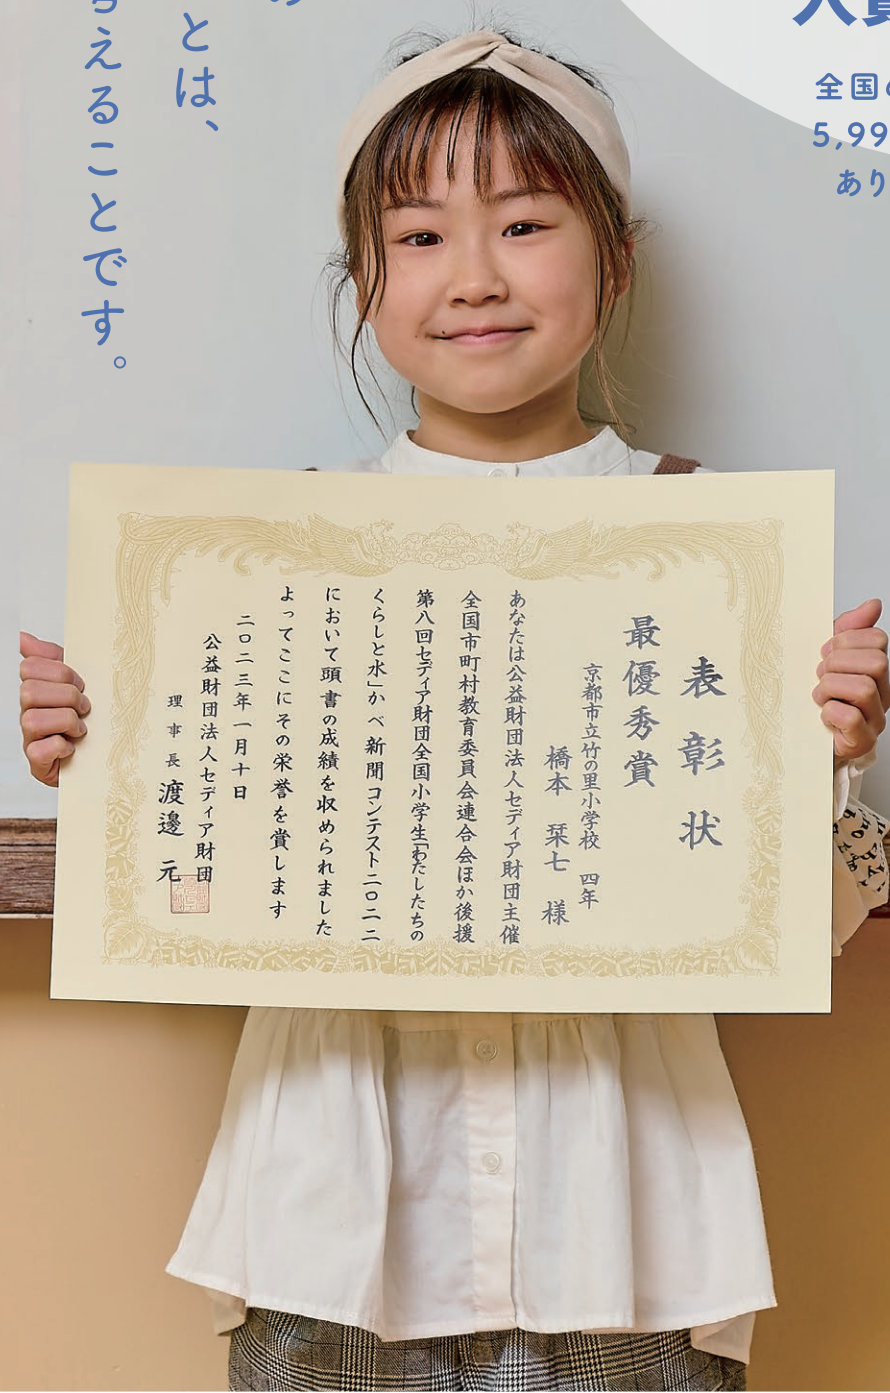 とは、
えることです。
全国
5,99
あり
表彰状
最優秀賞
京都市立竹の里小学校 四年
橋本 栞七 様
あなたは公益財団法人セディア財団主催
全国市町村教育委員会連合会ほか後援
第八回セディア財団全国小学生「わたしたちの
くらしと水」かべ新聞コンテスト二〇二二
において頭書の成績を収められました
よってここにその栄誉を賞します
二〇二三年一月十日
公益財団法人セディア財団
理事長 渡邊 元